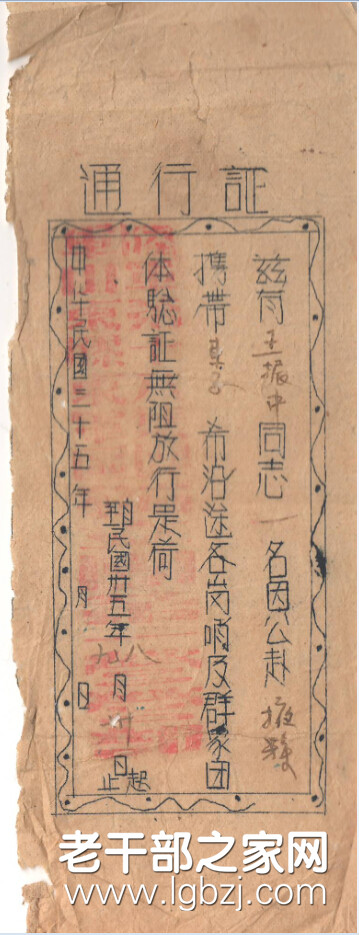 通行証
茲有王振中同志一名因公赴掖縣
携帶 希沿途各岗哨及群众团
体验証無阻放行是荷
自民國卅五年八月 日起
至 九 卅 止
中华民國三十五年 月 日
老干部之家网
www.lgbzj.com